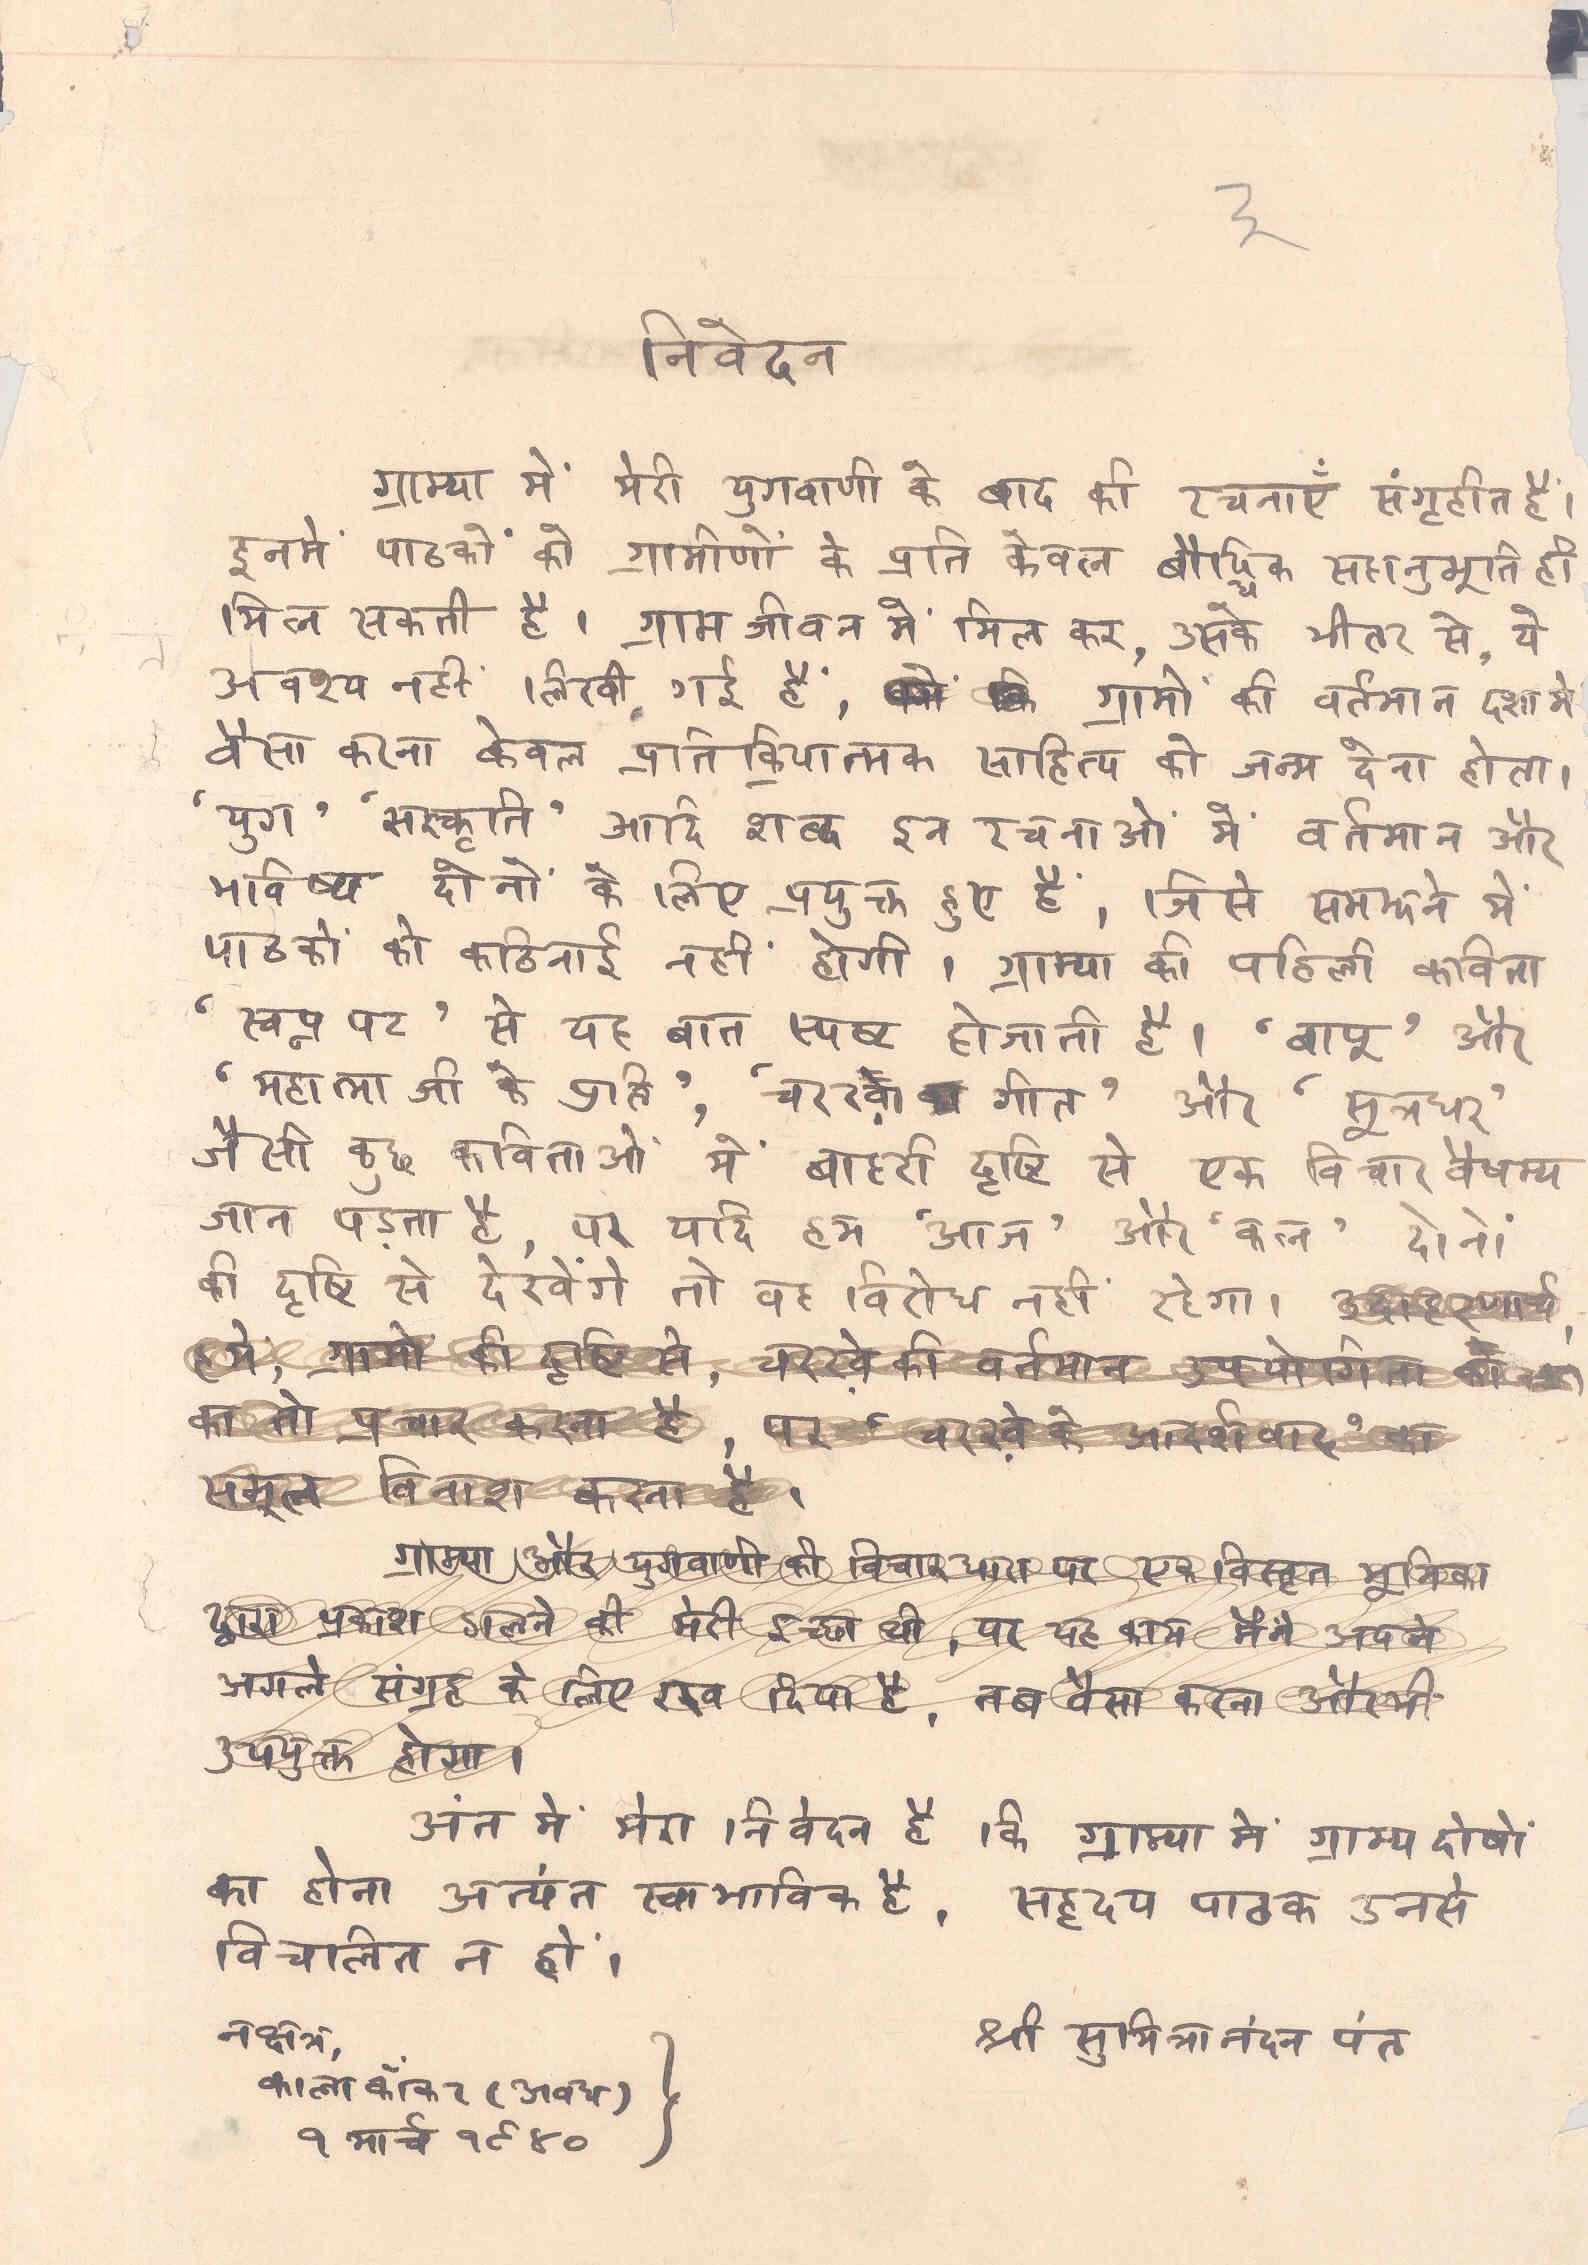 ३
निवेदन
ग्राम्या में मेरी युगवाणी के बाद की रचनाएँ संगृहीत हैं।
इनमें पाठकों को ग्रामीणों के प्रति केवल बौद्धिक सहानुभूति ही
मिल सकती है। ग्राम जीवन में मिल कर, उसके भीतर से, ये
अवश्य नहीं लिखी गई हैं, ग्रामों की वर्तमान दशा में
वैसा करना केवल प्रतिक्रियात्मक साहित्य को जन्म देना होता।
‘युग’ ‘संस्कृति’ आदि शब्द इन रचनाओं में वर्तमान और
भविष्य दोनों के लिए प्रयुक्त हुए हैं, जिसे समझने में
पाठकों को कठिनाई नहीं होगी। ग्राम्या की पहिली कविता
‘स्वप्न पट’ से यह बात स्पष्ट होजाती है। ‘बापू’ और
‘महात्मा जी के प्रति’, ‘चरखा गीत’ और ‘सूत्रधर’
जैसी कुछ कविताओं में बाहरी दृष्टि से एक विचार वैषम्य
जान पड़ता है, पर यदि हम ‘आज’ और ‘कल’ दोनों
की दृष्टि से देखेंगे तो वह विरोध नहीं रहेगा। उदाहरणार्थ,
हमें, ग्रामों की दृष्टि से, चरखे की वर्तमान उपयोगिता
का तो प्रचार करना है, पर ‘चरखे के आदर्शवाद’ का
समूल विनाश करना है।
ग्राम्या और युगवाणी की विचार धारा पर एक विस्तृत भूमिका
द्वारा प्रकाश डालने की मेरी इच्छा थी, पर यह कार्य मैंने अपने
अगले संग्रह के लिए रख दिया है, तब वैसा करना और भी
उपयुक्त होगा।
अंत में मेरा निवेदन है कि ग्राम्या में ग्राम्य दोषों
का होना अत्यंत स्वाभाविक है, सहृदय पाठक उनसे
विचलित न हों।
श्री सुमित्रानंदन पंत
नक्षत्र,
कालाकाँकर (अवध)
१ मार्च १९४०